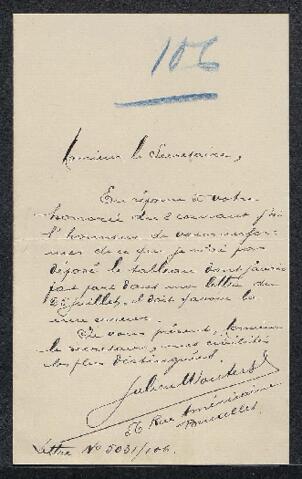 106
Monsieur le Secretaire,
En réponse à votre
honorée du 2 courant j'ai
l'honneur de vous infor-
mer de ce que je n'ai pas
déposé le tableau dont j'avais
fait part dans ma lettre du
juillet, 
En vous priant, Monsieur
le secretaire, mes civilités
les plus distinguées.
Julien Wouters
56 Rue Américaine
Bruxelles.
Lettre No 5031/106.